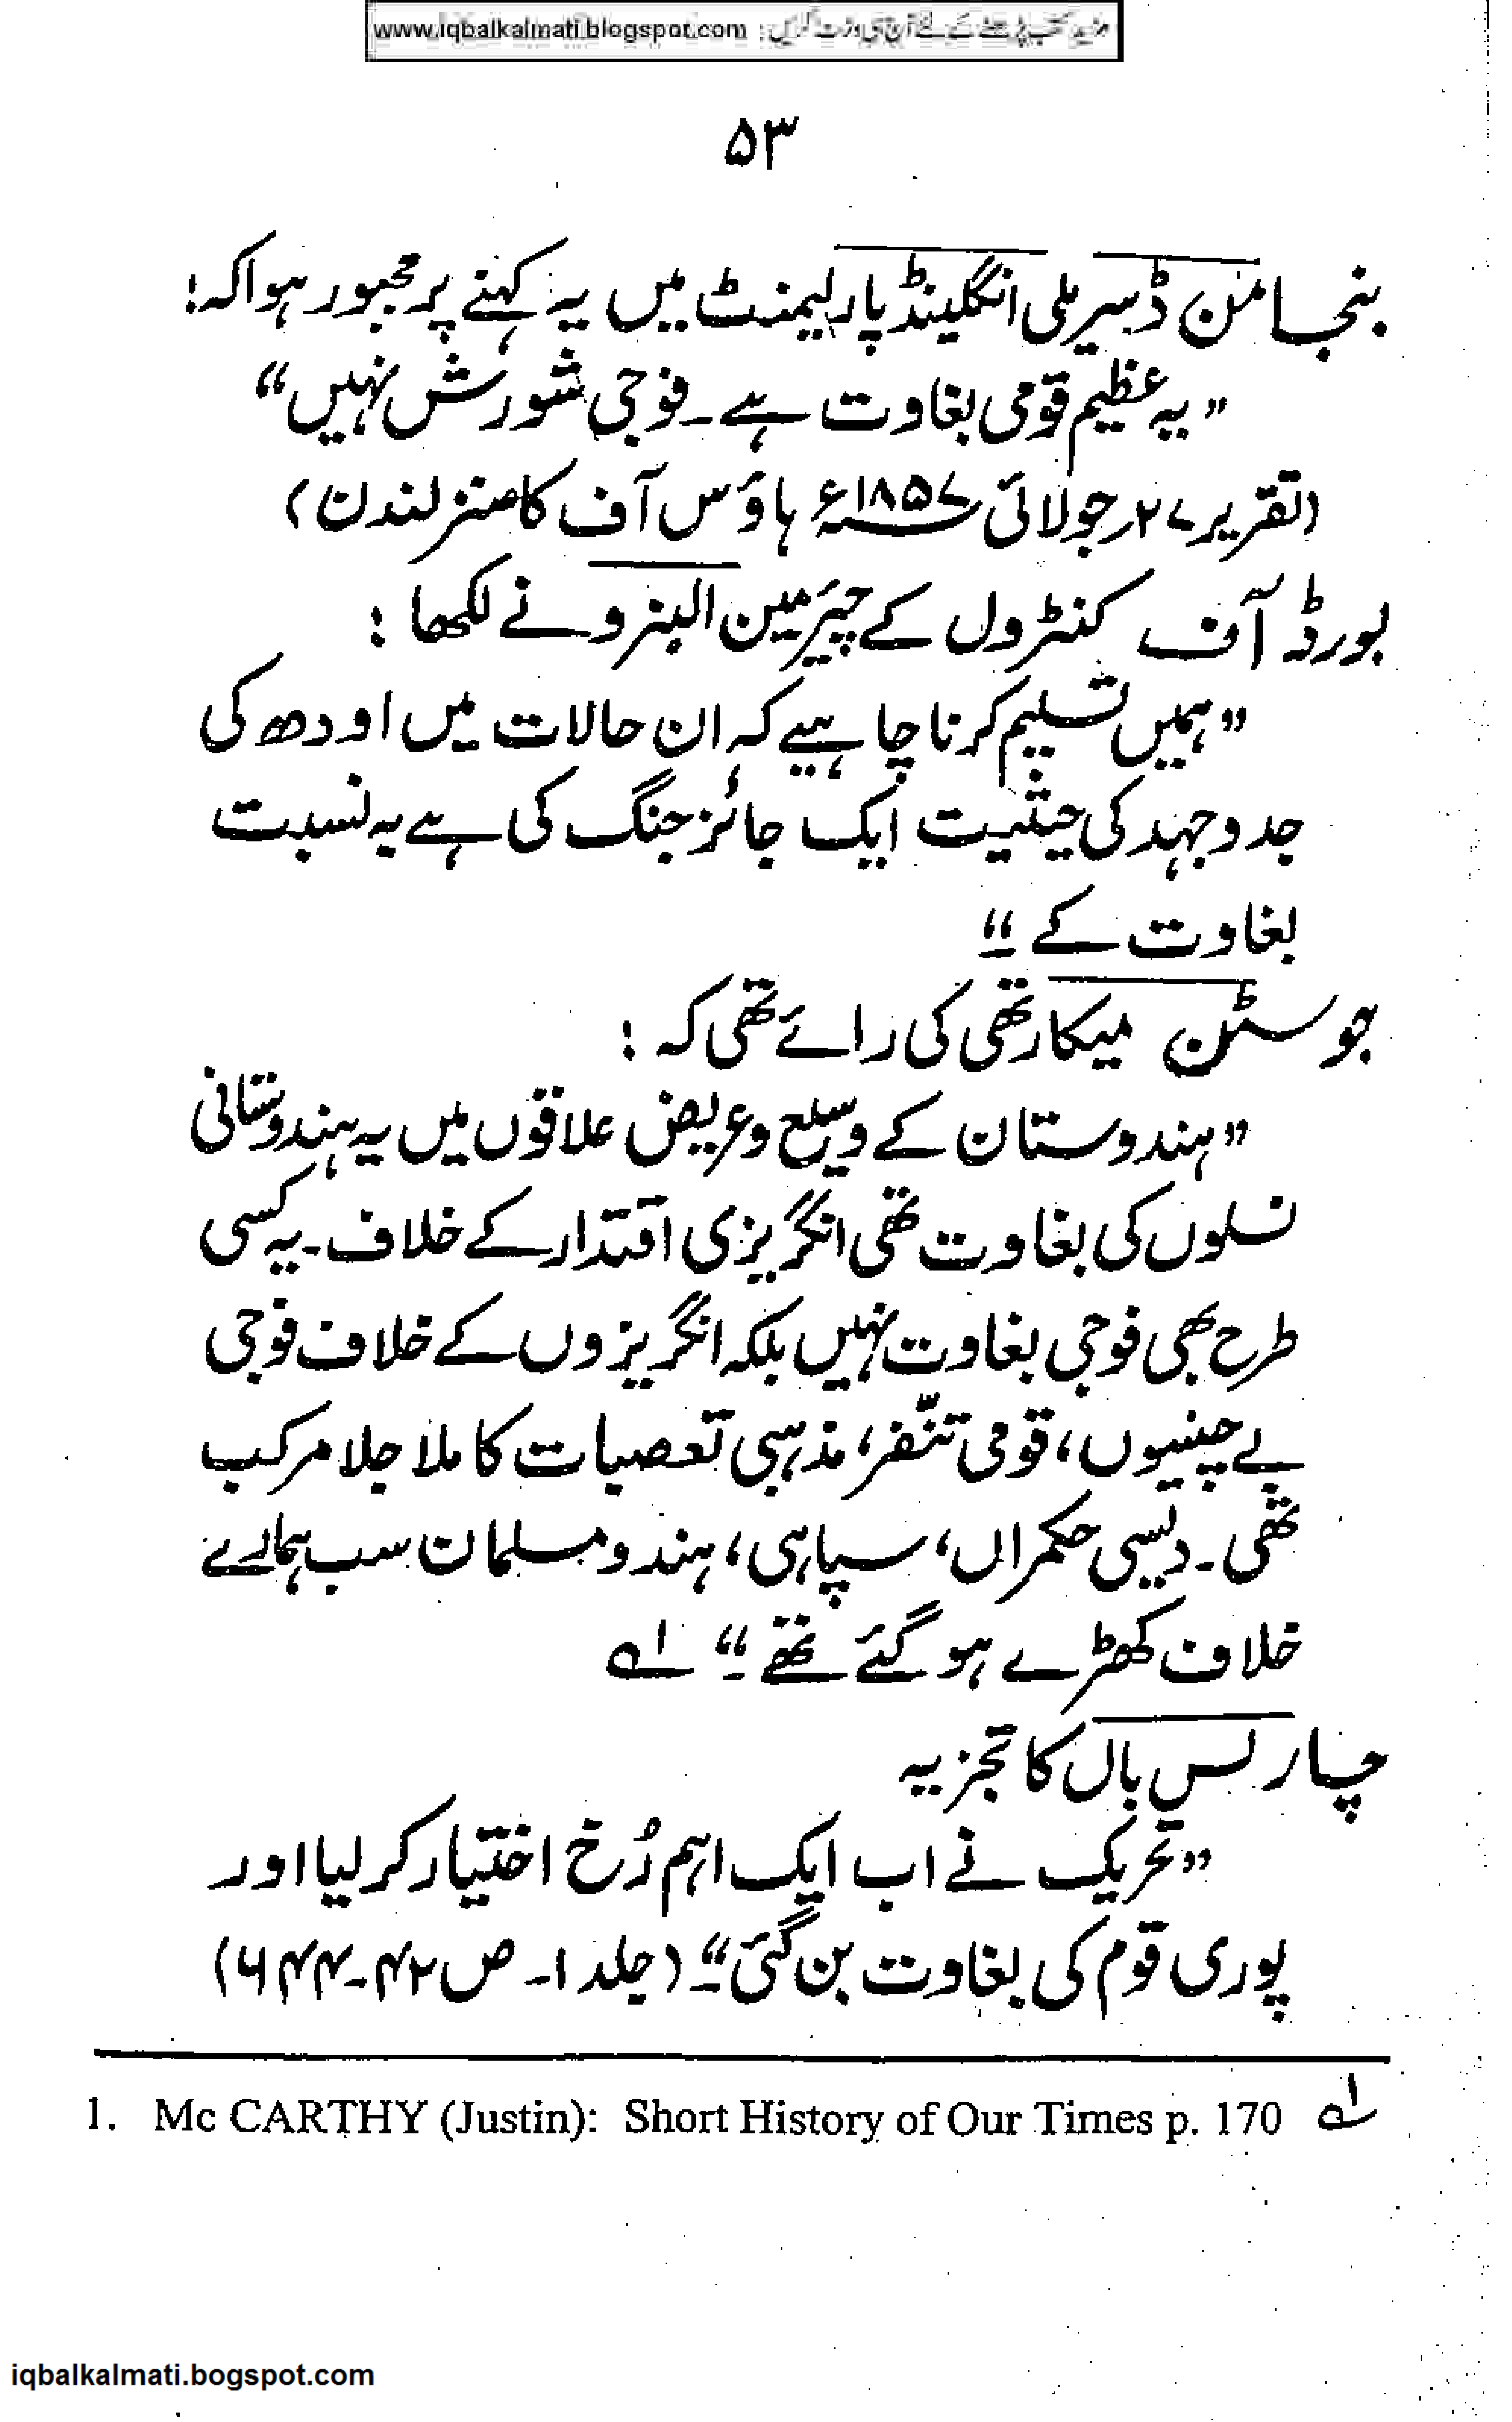 مزید کتب پڑھنے کے لئے آج ہی وزٹ کریں : www.iqbalkalmati.blogspot.com
۵۳
بنجامن ڈسریلی انگلینڈ پارلیمنٹ میں یہ کہنے پر مجبور ہوا کہ:
”یہ عظیم قومی بغاوت ہے۔ فوجی شورش نہیں“
(تقریر ۲۷؍جولائی ۱۸۵۷ء ہاؤس آف کامنز لندن)
بورڈ آف کنٹرول کے چیئرمین البنرو نے لکھا :
”ہمیں تسلیم کرنا چاہیے کہ ان حالات میں اودھ کی
جدوجہد کی حیثیت ایک جائز جنگ کی ہے یہ نسبت
بغاوت کے۔“
جوسٹن میکارتھی کی رائے تھی کہ :
”ہندوستان کے وسیع وعریض علاقوں میں یہ ہندوستانی
نسلوں کی بغاوت تھی انگریزی اقتدار کے خلاف۔ یہ کسی
طرح بھی فوجی بغاوت نہیں بلکہ انگریزوں کے خلاف فوجی
بے چینیوں، قومی تنفّر، مذہبی تعصبات کا ملا جلا مرکب
تھی۔ دیسی حکمراں، سپاہی، ہندو مسلمان سب ہمارے
خلاف کھڑے ہو گئے تھے۔“ ؎۱
چارلس بال کا تجزیہ
”تحریک نے اب ایک اہم رُخ اختیار کر لیا اور
پوری قوم کی بغاوت بن گئی۔“ (جلد ۱۔ ص ۴۲۔۶۴۴)
1. Mc CARTHY (Justin): Short History of Our Times p. 170 ؎۱
iqbalkalmati.bogspot.com